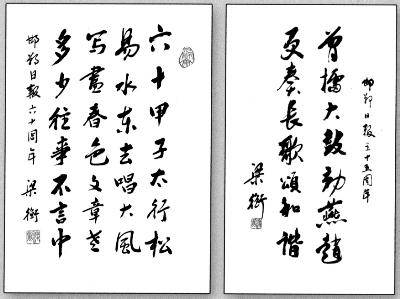 曾擂大鼓动燕赵
更奏长歌颂和谐
邯郸日报三十五周年
梁衡
六十甲子太行松
易水东去唱大风
写尽春色文章老
多少往事不言中
邯郸日报六十周年
梁衡